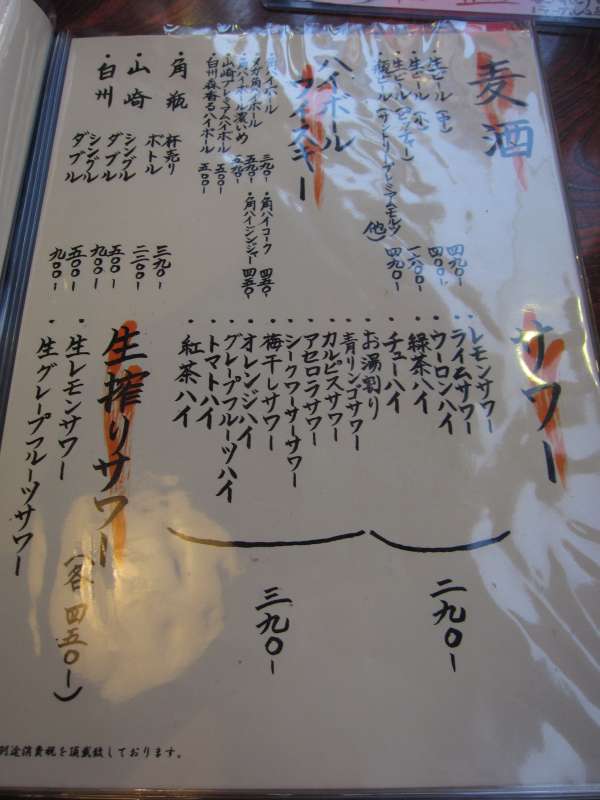 麦酒
・生ビール（中） 四九0-
・生ビール（小） 四00-
・生ビール（ピッチャー） 一六00-
・瓶ビール（サントリープレミアムモルツ他） 四九0-
ハイボール
ウイスキー
・角ハイボール 三九0-
・メガ角ハイボール 五九0-
・角ハイボール濃いめ 五九0-
・山崎プレミアムハイボール 五00-
・白州森香るハイボール 五00-
・角ハイコーク 四五0-
・角ハイジンジャー 四五0-
・角瓶 杯売り 三九0-
ボトル 二二00-
・山崎 シングル 五00-
ダブル 九00-
・白州 シングル 五00-
ダブル 九00-
サワー
・レモンサワー
・ライムサワー
・ウーロンハイ
・緑茶ハイ
・チューハイ
・お湯割り
二九0-
・青リンゴサワー
・カルピスサワー
・アセロラサワー
・シークワーサーサワー
・梅干しサワー
・オレンジハイ
・グレープフルーツハイ
・トマトハイ
・紅茶ハイ
三九0-
生搾りサワー
・生レモンサワー
・生グレープフルーツサワー
（各四五0-）
別途消費税を頂戴致しております。